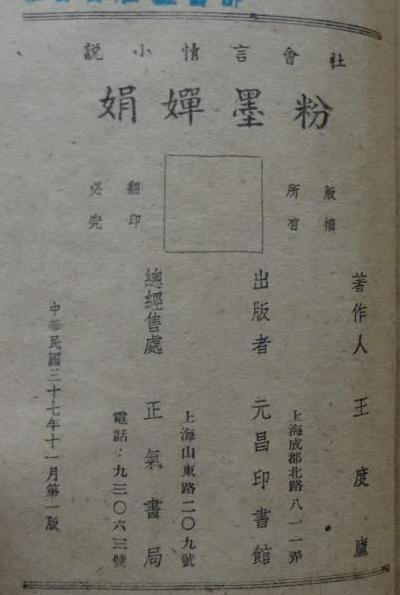 社會言情小說
粉墨嬋娟
版權所有
翻印必究
著作人 王度廬
出版者 元昌印書館
上海成都北路八一一弄
總經售處 正氣書局
上海山東路二〇九號
電話：九三〇六三號
中華民國三十七年十一月第一版